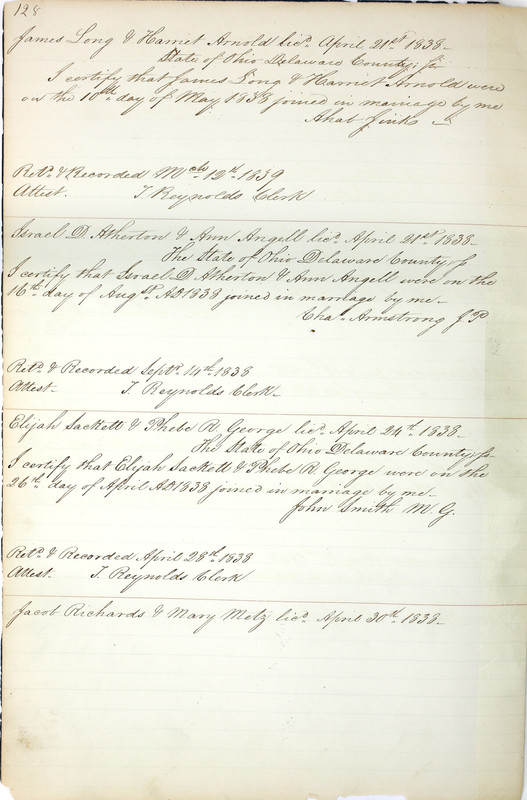 128
James Long & Harriet Arnold licd. April 21st 1838-
State of Ohio Delaware County, Ss
I certify that James Long & Harriet Arnold were
on the 10th day of May 1838 joined in marriage by me
Ahab Jinks
Retd. & Recorded Mch 12th 1839
Attest. T. Reynolds Clerk
Israel D. Atherton & Ann Angell licd. April 21st 1838-
The State of Ohio Delaware County Ss
I certify that Israel D. Atherton & Ann Angell were on the
16th day of Augst. AD 1838 joined in marriage by me-
Chas. Armstrong J P
Retd. & Recorded Septr. 14th 1838
Attest- T. Reynolds Clerk-
Elijah Sackett & Phebe R. George licd. April 24th 1838-
The State of Ohio Delaware County, Ss-
I certify that Elijah Sackett & Phebe R. George were on the
26th day of April AD 1838 joined in marriage by me-
John Smith M. G.
Retd. & Recorded April 28th 1838
Attest. T. Reynolds Clerk
Jacob Richards & Mary Metz licd. April 30th 1838-